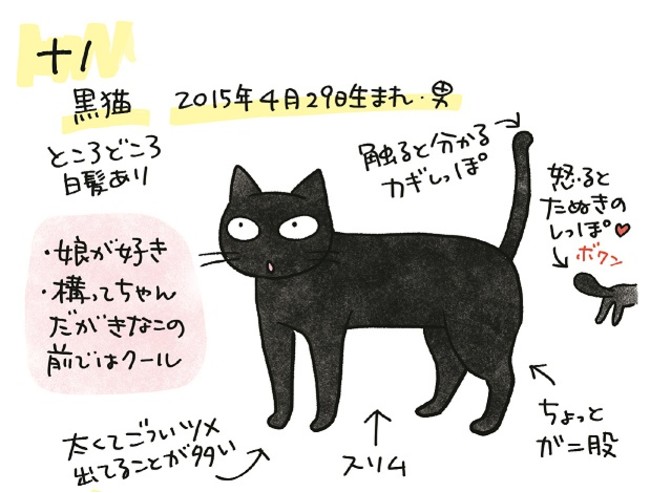 ナノ
黒猫
2015年4月29日生まれ・男
ところどころ
白髪あり
触ると分かる
カギしっぽ
怒ると
たぬきの
しっぽ♥
ボワン
・娘が好き
・構ってちゃん
だがきなこの
前ではクール
太くてごついツメ
出てることが多い
スリム
ちょっと
ガニ股